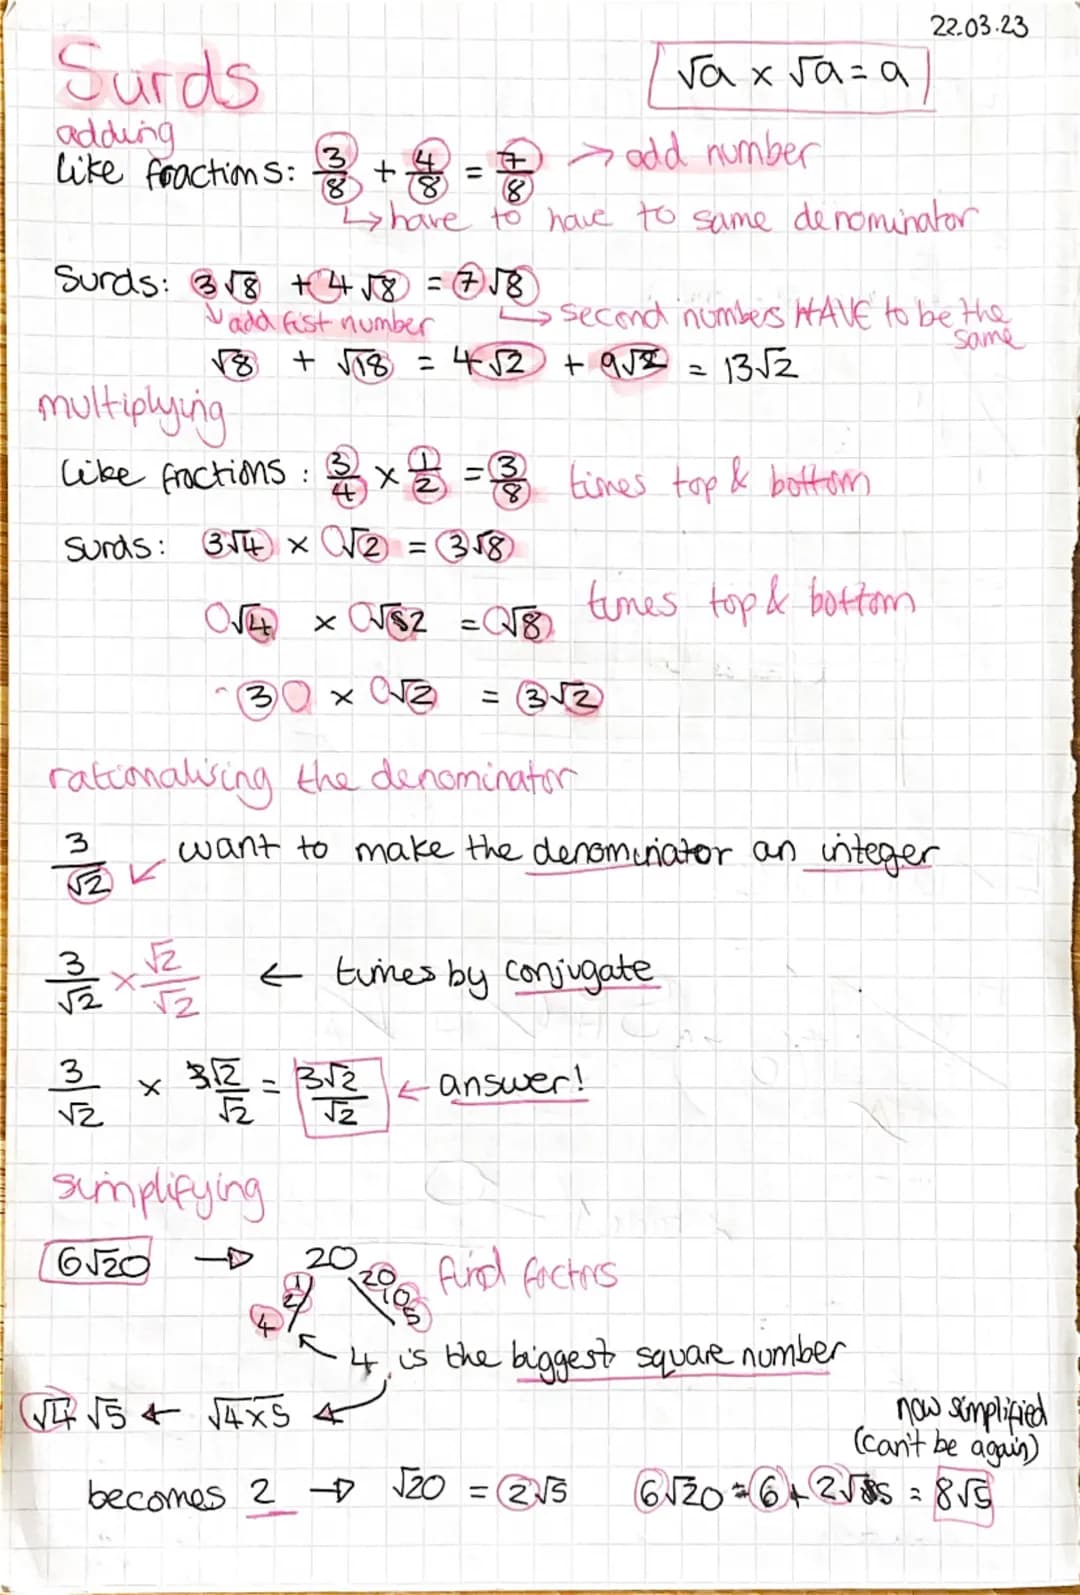 22.03.23
Surds
√a × √a = a
adding
like fractions: 3/8 + 4/8 = 7/8 → add number
↳ have to have to same denominator
Surds: 3√8 + 4√8 = 7√8
↓ add fist number
↳ second numbers HAVE to be the same
√8 + √18 = 4√2 + 9√2 = 13√2
multiplying
like fractions: 3/4 × 1/2 = 3/8 times top & bottom
surds: 3√4 × √2 = 3√8
√4 × √2 = √8 times top & bottom
3 × √2 = 3√2
rationalising the denominator
3/√2 ↙ want to make the denominator an integer
3/√2 × √2/√2 ← times by conjugate
3/√2 × 3√2/√2 = 3√2/√2 ← answer!
simplifying
6√20 → 20 find factors
1 20
2 10
4 5
4 is the biggest square number
√4 √5 ← √4×5 ←
now simplified
(can't be again)
becomes 2 → √20 = 2√5 6√20 = 6 + 2√5 = 8√5